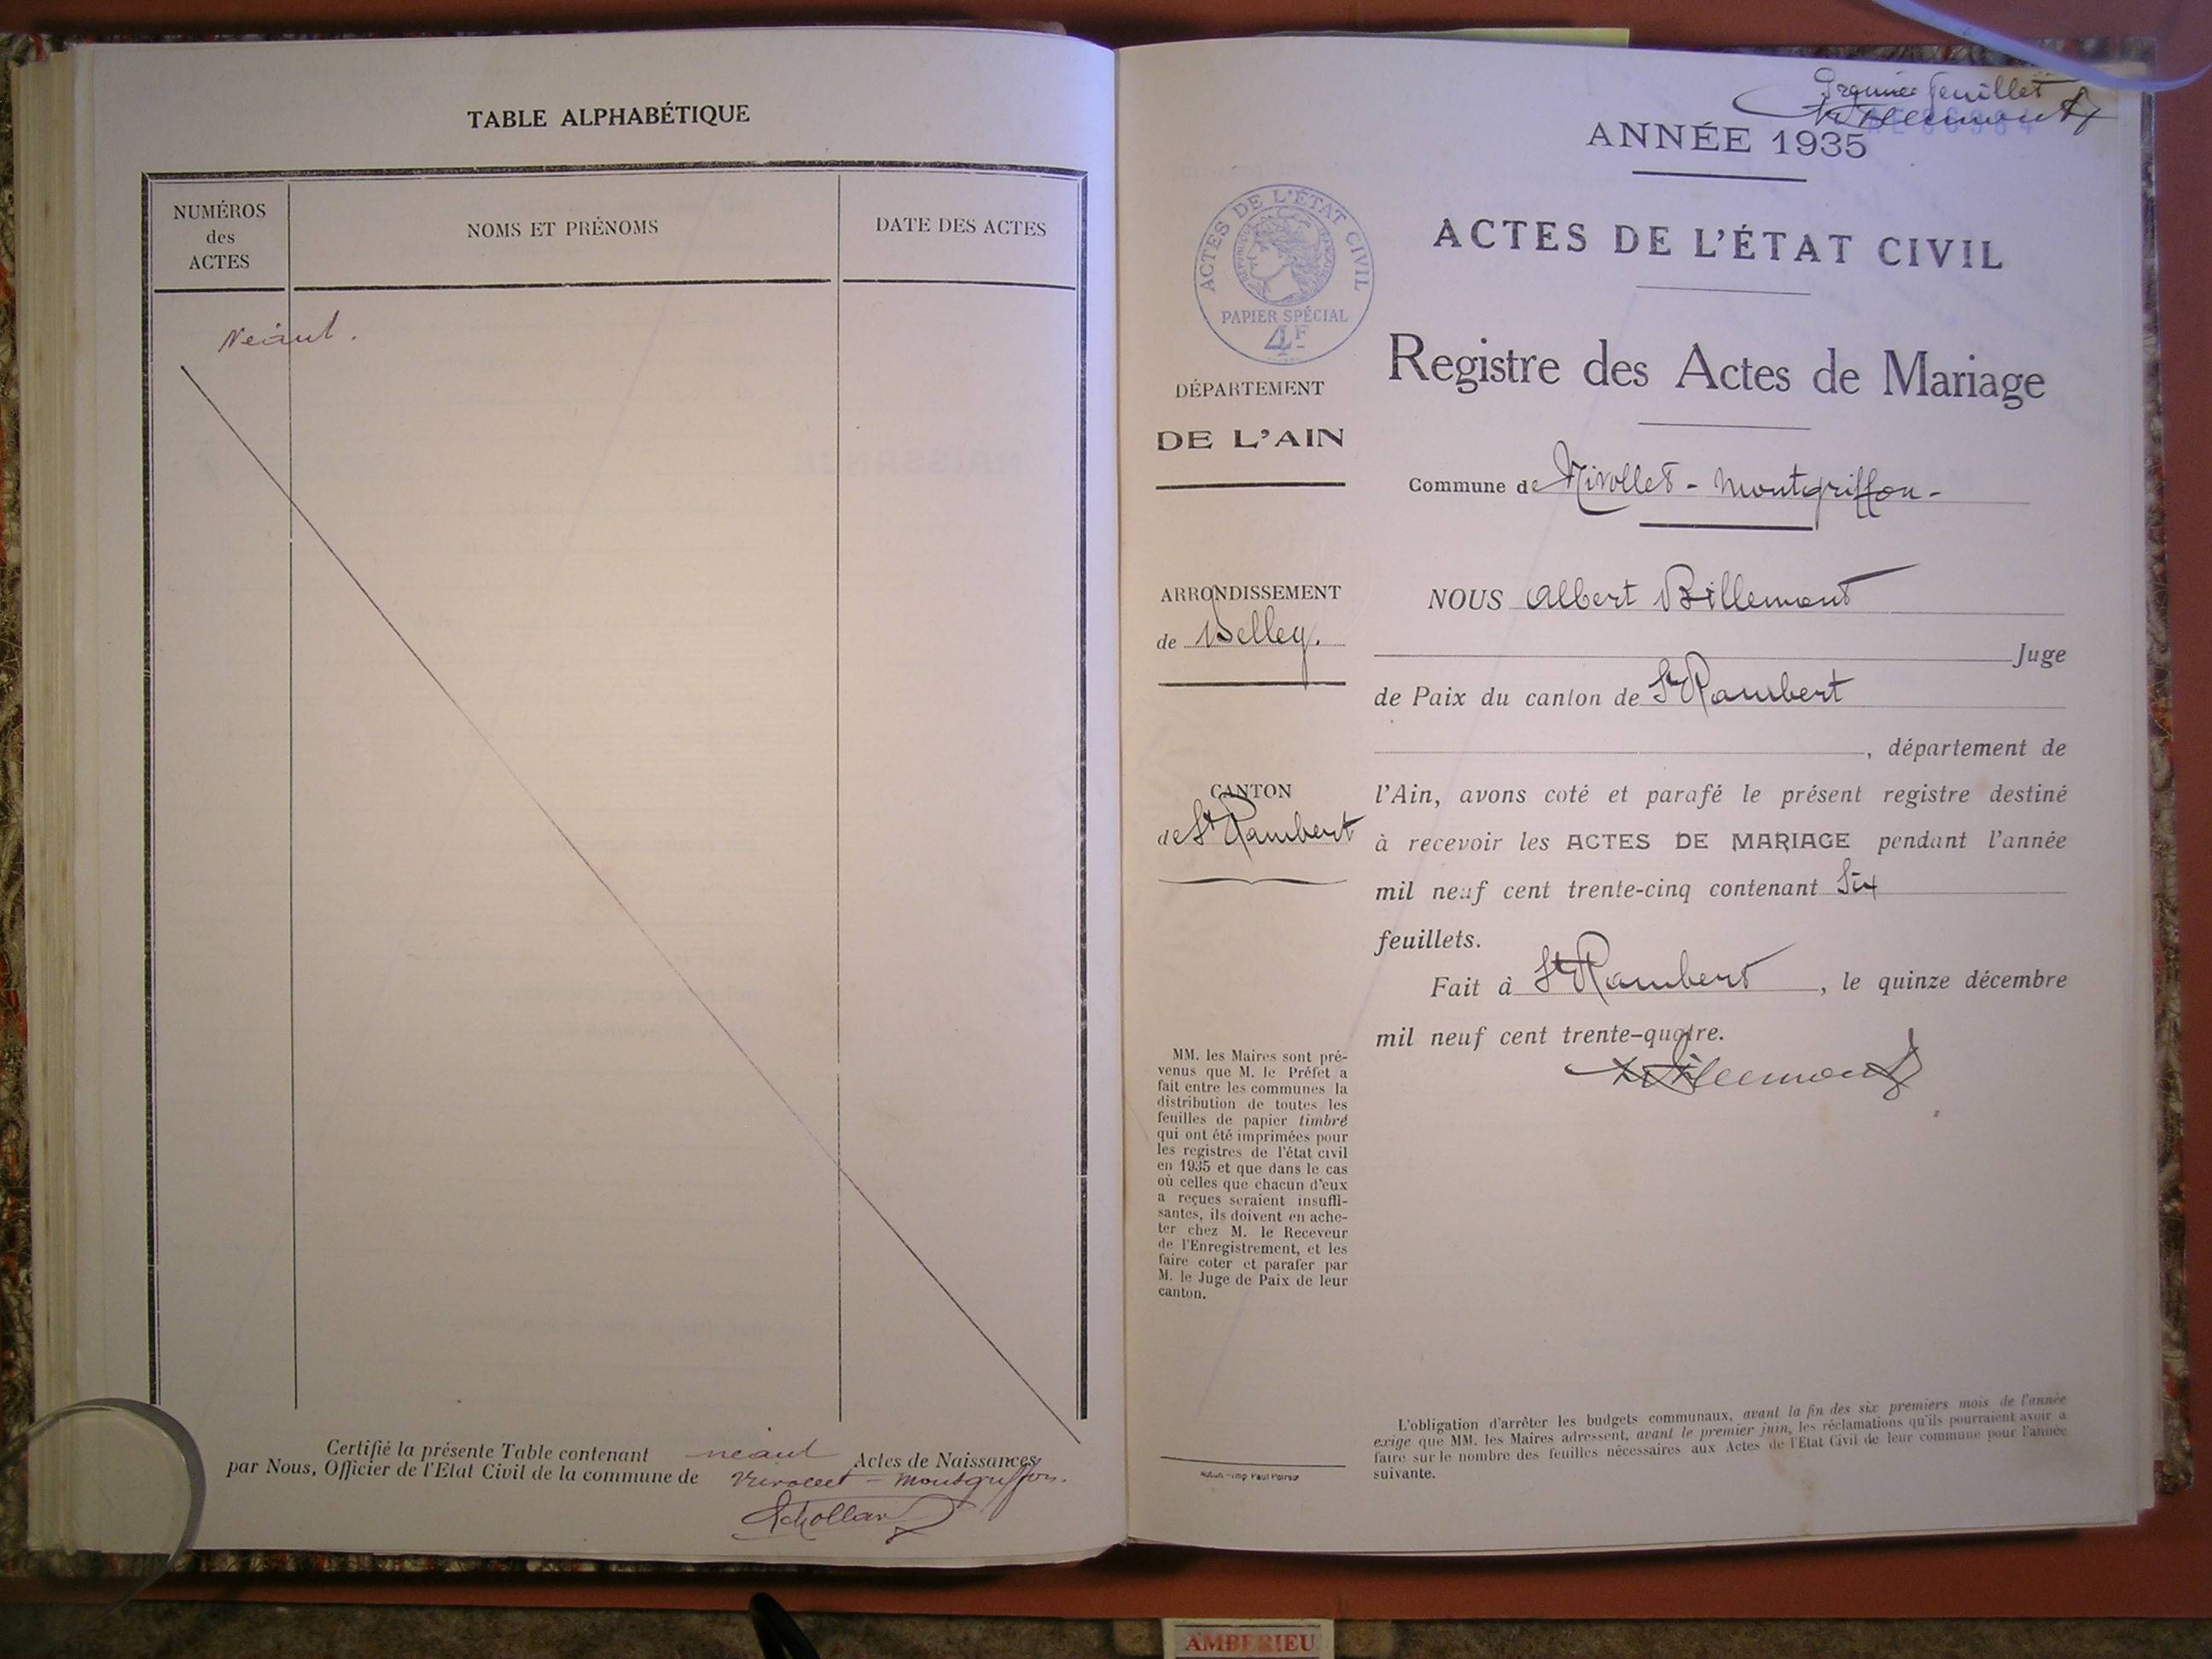 TABLE ALPHABÉTIQUE
NUMÉROS
des
ACTES
NOMS ET PRÉNOMS
DATE DES ACTES
Néant.
Certifié la présente Table contenant néant Actes de Naissances
par Nous, Officier de l'Etat Civil de la commune de Nivollet - Montgriffon.
Premier feuillet
ANNÉE 1935
ACTES DE L'ÉTAT CIVIL
ACTES DE L'ÉTAT CIVIL
RÉPUBLIQUE FRANÇAISE
PAPIER SPÉCIAL
4F
Registre des Actes de Mariage
DÉPARTEMENT
DE L'AIN
Commune de Nivollet - Montgriffon -
ARRONDISSEMENT
de Belley.
CANTON
de St Rambert
NOUS Albert Billemont
Juge
de Paix du canton de St Rambert
, département de
l'Ain, avons coté et parafé le présent registre destiné
à recevoir les ACTES DE MARIAGE pendant l'année
mil neuf cent trente-cinq contenant Six
feuillets.
Fait à St Rambert, le quinze décembre
mil neuf cent trente-quatre.
Billemont
MM. les Maires sont pré-
venus que M. le Préfet a
fait entre les communes la
distribution de toutes les
feuilles de papier timbré
qui ont été imprimées pour
les registres de l'état civil
en 1935 et que dans le cas
où celles que chacun d'eux
a reçues seraient insuffi-
santes, ils doivent en ache-
ter chez M. le Receveur
de l'Enregistrement, et les
faire coter et parafer par
M. le Juge de Paix de leur
canton.
L'obligation d'arrêter les budgets communaux, avant la fin des six premiers mois de l'année
exige que MM. les Maires adressent, avant le premier juin, les réclamations qu'ils pourraient avoir a
faire sur le nombre des feuilles nécessaires aux Actes de l'Etat Civil de leur commune pour l'année
suivante.
AMBERIEU